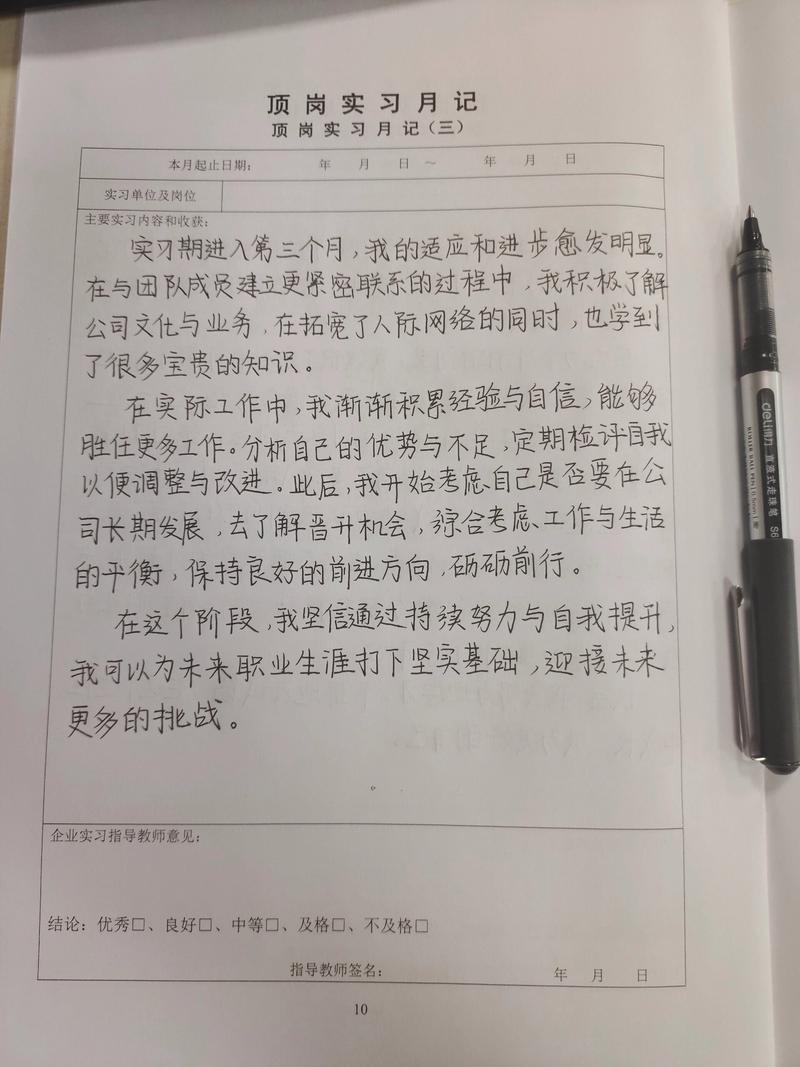 顶岗实习月记
顶岗实习月记（三）
本月起止日期： 年 月 日 ~ 年 月 日
实习单位及岗位
主要实习内容和收获：
实习期进入第三个月，我的适应和进步愈发明显。
在与团队成员建立更紧密联系的过程中，我积极了解
公司文化与业务，在拓宽了人际网络的同时，也学到
了很多宝贵的知识。
在实际工作中，我渐渐积累经验与自信，能够
胜任更多工作。分析自己的优势与不足，定期检评自我
以便调整与改进。此后，我开始考虑自己是否要在公
司长期发展，去了解晋升机会，综合考虑工作与生活
的平衡，保持良好的前进方向，砺砺前行。
在这个阶段，我坚信通过持续努力与自我提升，
我可以为未来职业生涯打下坚实基础，迎接未来
更多的挑战。
企业实习指导教师意见：
结论：优秀□、良好□、中等□、及格□、不及格□
指导教师签名： 年 月 日
10
deli得力 直液式走珠笔 S6
ROLLER BALL PEN